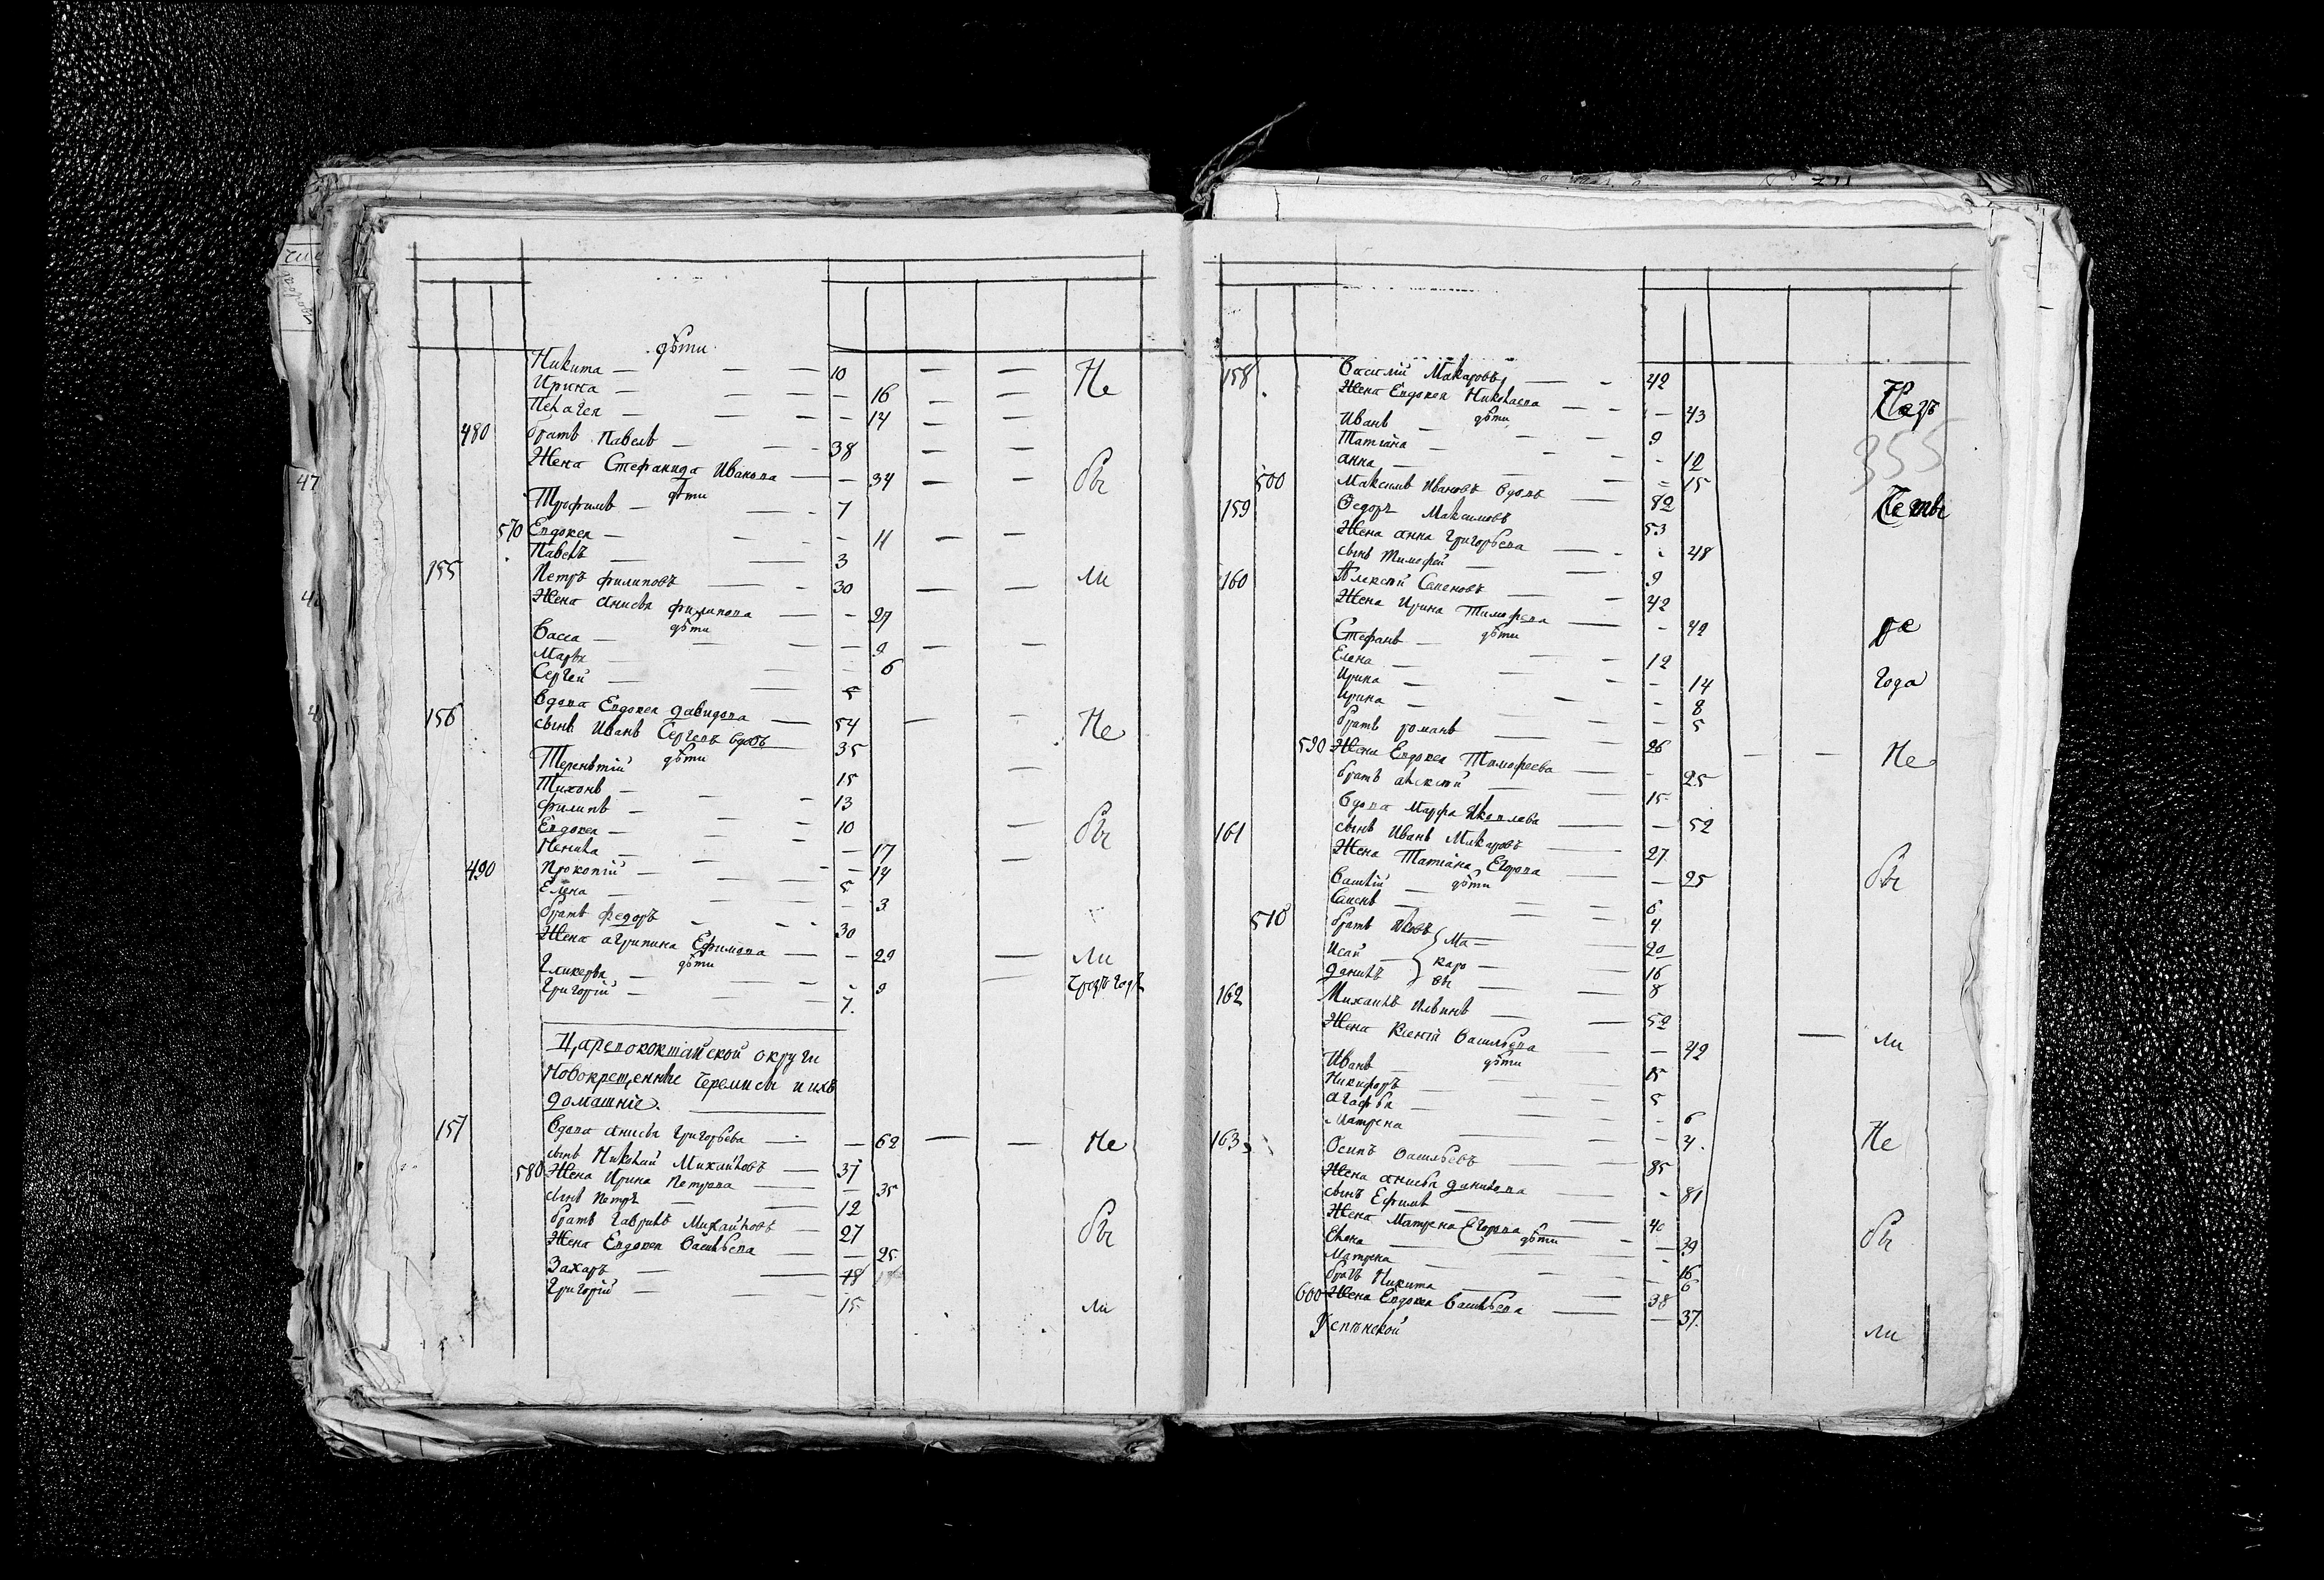 дѣти
Никита — 10 — — Не
Ирина — 16
Пелагея — 14
480 братъ Павелъ — 38
Жена Стефанида Иванова — 34 — — бы
дѣти
Трофимъ — 7
570 Евдокея — 11
Павелъ — 3
155 Петръ Филиповъ — 30 — — ли
Жена Анисья Филипова — 27
дѣти
Васса — 9
Марья — 6
Сергей — 5
вдова Евдокея Давидова — 54
156 сынъ Иванъ Сергеевъ вдовъ 35 — — Не
дѣти
Терентій 15
Тихонъ — 13
Филипъ — 10
Евдокея — 17 — бы
Ненила — 14
490 Прокопій — 5
Елена — 3
братъ Федоръ 30
Жена Агрипина Ефимова — 29 — ли
дѣти
Гликерья — 9
Григорій — 7. чрезъ годъ
Царевококшайской округи
Новокрещенные Черемисы и ихъ
домашніе.
157 вдова Анисья Григорьева — 62 — — Не
сынъ Николай Михайловъ — 37
580 Жена Ирина Петрова — 35
сынъ Петръ — 12
братъ Гаврилъ Михайловъ — 27 бы
Жена Евдокея Васильева — 25
Захаръ — 18
Григорій — 15 ли
158 Василій Макаровъ — 42
Жена Евдокея Николаева — 43
дѣти
Иванъ — 9
Татіана — 12
Анна — 15
355
500 Максимъ Ивановъ вдовъ — 82
159 Федоръ Максимовъ 53 Четы
Жена Анна Григорьева — 48
сынъ Тимофей — 9
160 Алексѣй Семеновъ — 42
Жена Ирина Тимофеева — 42 ре
дѣти
Стефанъ — 12
Елена — 14 года
Ирина — 8
Ирина — 5
братъ Романъ — 26
590 Жена Евдокея Тимофеева — 25 — — Не
братъ Алексѣй — 15
вдова Марфа Яковлева — 52
161 сынъ Иванъ Макаровъ — 27
Жена Татіана Егорова — 25 бы
дѣти
Василій — 6
Семенъ — 4
510 братъ Яковъ } Ма — 20
Исай — } каро — 16
Данилъ } вы — 8
162 Михаилъ Ильинъ — 52
Жена Ксенія Васильева — 42 — ли
дѣти
Иванъ 15
Никифоръ — 5
Агафья — 6
Матрена — 4.
163 Осипъ Васильевъ — 85 Не
Жена Анисья Данилова — 81
сынъ Ефимъ — 40
Жена Матрена Егорова — 39 бы
дѣти
Елена — 16
Матрена — 6
братъ Никита — 38
600 Жена Евдокея Васильева — 37.
ли